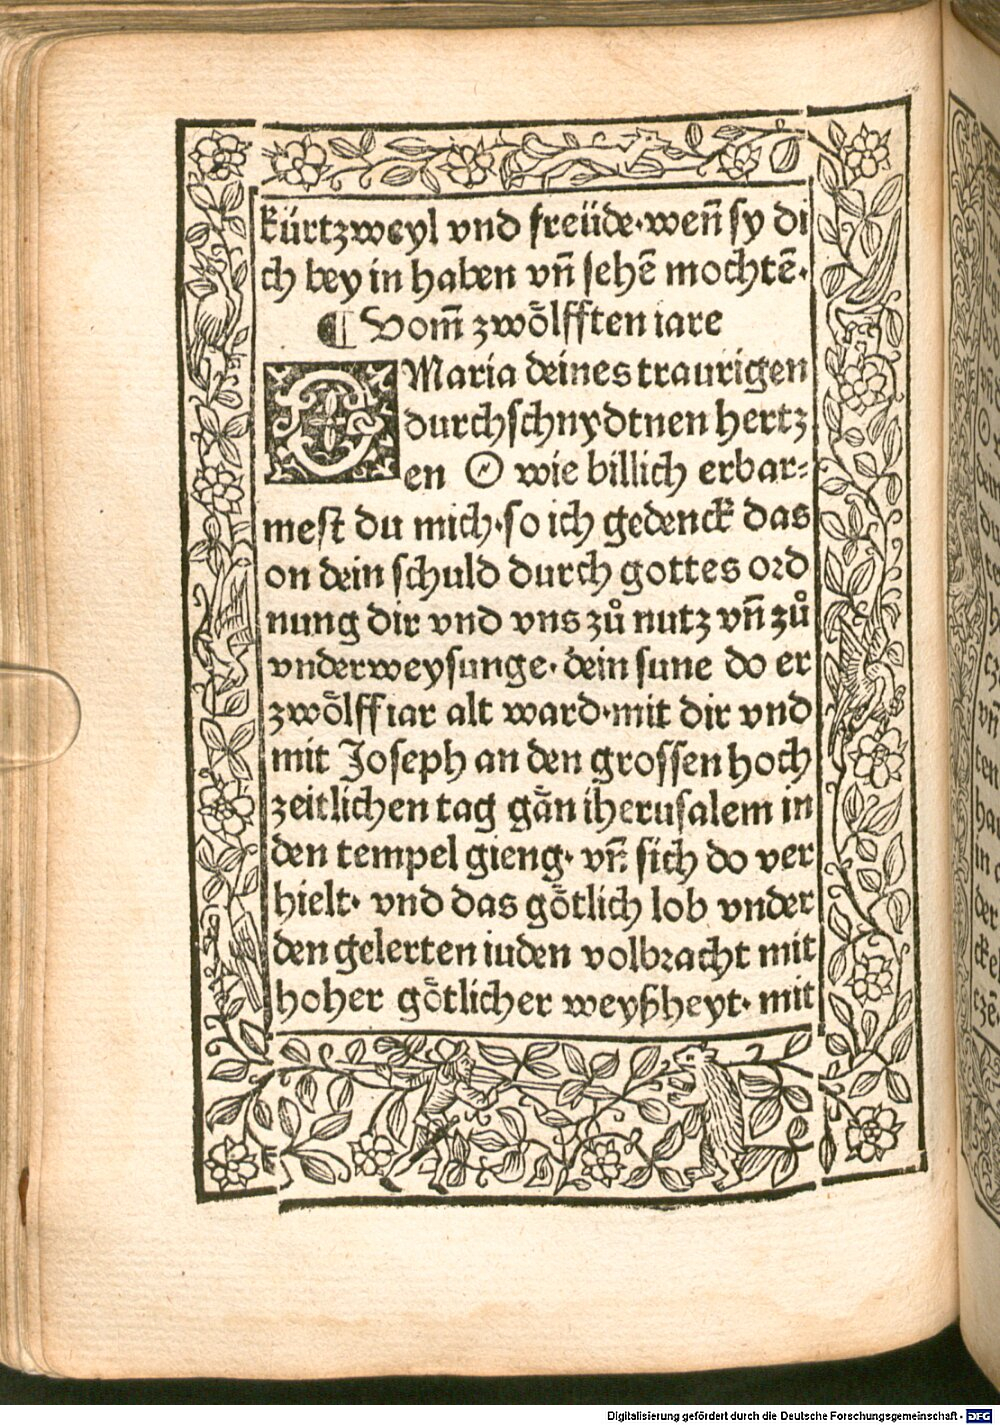 kürtzweyl vnd freüde·weñ sy di
ch bey in haben vñ sehē mochtē·
¶ Vom̄ zwȫlfften iare
O Maria deines traurigen
durchschnydtnen hertz
en O wie billich erbar⸗
mest du mich·so ich gedenck das
on dein schuld durch gottes ord
nung dir vnd vns zů nutz vñ zů
vnderweysunge· dein sune do er
zwȫlff iar alt ward·mit dir vnd
mit Joseph an den grossen hoch
zeitlichen tag gän iherusalem in
den tempel gieng· vñ sich do ver
hielt· vnd das götlich lob vnder
den gelerten iuden volbracht mit
hoher götlicher weyßheyt· mit
Digitalisierung gefördert durch die Deutsche Forschungsgemeinschaft - DFG